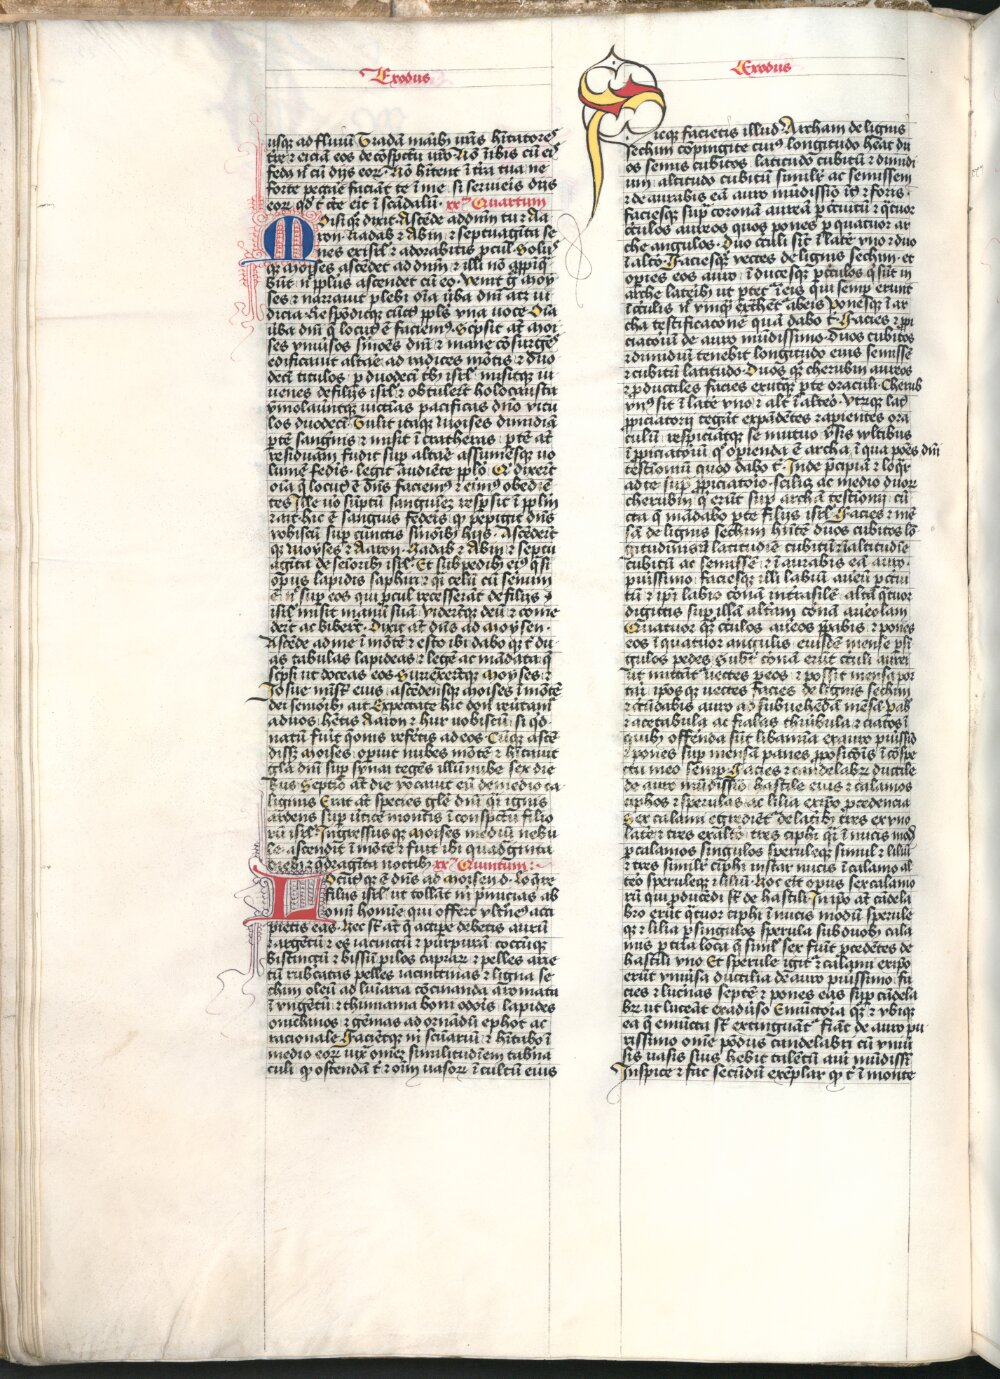 Exodus
usq; ad fluviu Tradā maib vris hitatores
tre et eiciā eos de cōspctu vro Nō inibis cū eis
fedq n cū dijs eor Nō hitent ī tra tua ne
forte peccare faciāt te ī me si servieris dijs
eor qd t cte erit ī scādalū xxm Quartum
Moisi qz dixit Ascēde ad dnm tu et Aa
ron Nadab et Abiu et septuagīta se
nes ex isrl et adorabitis pcul Solus
qz Moises ascēdet ad dnm et illi nō appīq
būt n pplus ascendet cū eo Venit g moy
ses et narravit plebi oīa vba dnī atqz iu
dicia Respōditqz cūct ppls vna voce Oīa
vba dnī q locut ē faciem Scpsit at moi
ses vniusos smōes dnī et mane cōsurgēs
edificavit altare ad radices mōtis et duo
deci titulos p duodeci tb isrl misitqz iu
venes de filijs isrl et obtulert holocausta
ymolaverutqz victias pacificas dno vitu
los duodeci Tulit itaqz Moises dimidiā
ptē sanguis et misit ī cratheras ptē at
residuam fudit sup altare assumēsqz vo
lumē fedis legit audiēte pplo Qi dixert
oīa q locut ē dns faciem et eim obediē
tes Ille vo sūptū sanguiez respsit ī pplm
et ait hic ē sanguis fedis qz pepigit dns
vobiscū sup cunctis smōib hijs Ascēdert
qz Moyses et Aaron Nadab et Abiu et septu
agīta de seiorib isrl Et sub pedib ei qsi
opus lapidis saphiri et qsi celū cū serenum
ē n sup eos qui pcul recesserāt de filijs
isrl misit manū suā viderūtqz deū et come
dert ac bibert Dixit at dns ad Moysen
Ascēde ad me ī mōtē et esto ibi dabo qz t du
as tabulas lapideas et legē ac mādata q
scpsi ut doceas eos Surrexertqz Moyses et
Josue mīst eius ascēdensqz Moises ī mōtē
dei seniorib ait Expectate hic don revtam
ad vos hētis Aaron et hur vobiscū si qd
natū fuit qōnis refetis ad eos Cūqz ascē
disset Moises opuit nubes mōtē et hitavit
gla dnī sup synai tegēs illū nube sex die
bus Septio at die vocavit eū de medio ca
liginis Erat at species gle dnī qsi ignis
ardens sup vticē montis ī conspctu filio
rū isrl Ingressus qz Moises mediū nebu
le ascendit ī mōtē et fuit ibi quadginta
dieb et qdragīta noctib xxm Quintum
Locut qz ē dns ad Moisen d Loqre
filijs isrl ut tollāt m pmicias ab
omi homie qui offert vltne acci
pietis eas Nec st at q accipe debetis aurū
et argētū et es iacinctū et purpurā coccūqz
bistinctū et bissū pilos caprar et pelles arie
tū rubcatas pelles iacinctinas et ligna se
chim oleū ad lumaria cōcinnanda aromata
ī vngētū et thimiama boni odoris lapides
onichinos et gēmas ad ornādū ephot ac
racionale Facietqz m scuariū et hitabo ī
medio eor iux omez similitudiem tabna
culi qz ostendā t et oīm vasor ī cultū eius
Exodus
Sicqz facietis illud Archam de lignis
sechim cōpingite cui longitudo heat du
os semis cubitos latitudo cubitū et dimidi
um altitudo cubitū similr ac semissem
et deaurabis eā auro mūdissio īt et foris
faciesqz sup coronā aureā p circuitū et qtuor
cculos aureos quos pones p quatuor ar
che angulos Duo cculi sīt ī late vno et duo
ī alto Faciesqz vectes de lignis sechim et
opies eos auro ī ducesqz p cculos q sūt in
arche laterib ut ptet ī eis qui semp erunt
ī cculis n vnqz extēht ab eis Ponesqz ī ar
cha testificacōne quā dabo t Facies et ppi
ciatoriū de auro mūdissimo duos cubitos
et dimidiū tenebit longitudo eius semissē
et cubitū latitudo Duos qz cherubin aureos
et pductiles facies ex utqz pte oraculi Cherub
vn sit ī late vno et alt ī alteo Vtrqz lat
ppiciatorij tegāt expādētes et apientes ora
culū respiciātqz se mutuo vsis vltibus
ī ppiciatoriū q opienda ē archa ī qua pōes dnī
testīoniū quod dabo t Inde pcipiā et loqr
ad te sup ppiciatorio scilicz ac medio duor
cherubin q erūt sup archā testīonij cū
cta q mādabo p te filijs isrl Facies et mē
sā de lignis sechim hntē duos cubitos lō
gitudinis et latitudie cubitū et ī altitudie
cubitū ac semissē et ī aurabis eā auro
purissimo faciesqz illi labiū aureū p circui
tū et ipi labio coronā intrasilē altā qtuor
digitis sup illā altam coronā aureolam
Quatuor qz cculos aureos ppabis et pones
eos ī quatuor angulis eiusdē mense p si
gulos pedes Subt coronā erūt cculi aurei
ut mittāt vectes p eos et possit mensa por
tari ipos qz vectes facies de lignis sechim
et circūdabis auro ad subuehēdā mēsā pab
et acetabula ac fialas thuribula et ciatos ī
quib offerēda sūt libamia ex auro purissio
et pones sup mensā panes pposicōis ī cōspe
ctu meo semp Facies et candelabr ductile
de auro mūdissio hastile eius et calamos
ciphos et sperulas ac lilia ex ipo pcedencia
Sex calami egrediēt de latib tres ex vno
late et tres ex alto tres ciphi qsi ī nucis mod
p calamos singulos speruleqz simul et liliū
et tres similr ciphi instar nucis ī calamo al
teo speruleqz et liliū Hoc est opus sex calamo
rū qui pducedi st de hastili In ipo at cādela
bro erūt qtuor ciphi ī nucis modū sperule
qz et lilia p singulos sperula sub duob cala
mis p tria loca q siml sex fiūt pcedētes de
hastili vno Et sperule igit et calami ex ipo
erūt vniusa ductilia de auro purissimo fa
cies et lucnas septē et pones eas sup cādela
br ut luceāt ex aduso Emūctoria qz et vbi qz
ea q emūcta st extinguāt fiāt de auro pu
rissimo omē pōdus candelabri cū vniu
sis vasis suis hebit talētū auri mūdissi
Inspice et fac secūdū exēplar qz t ī monte